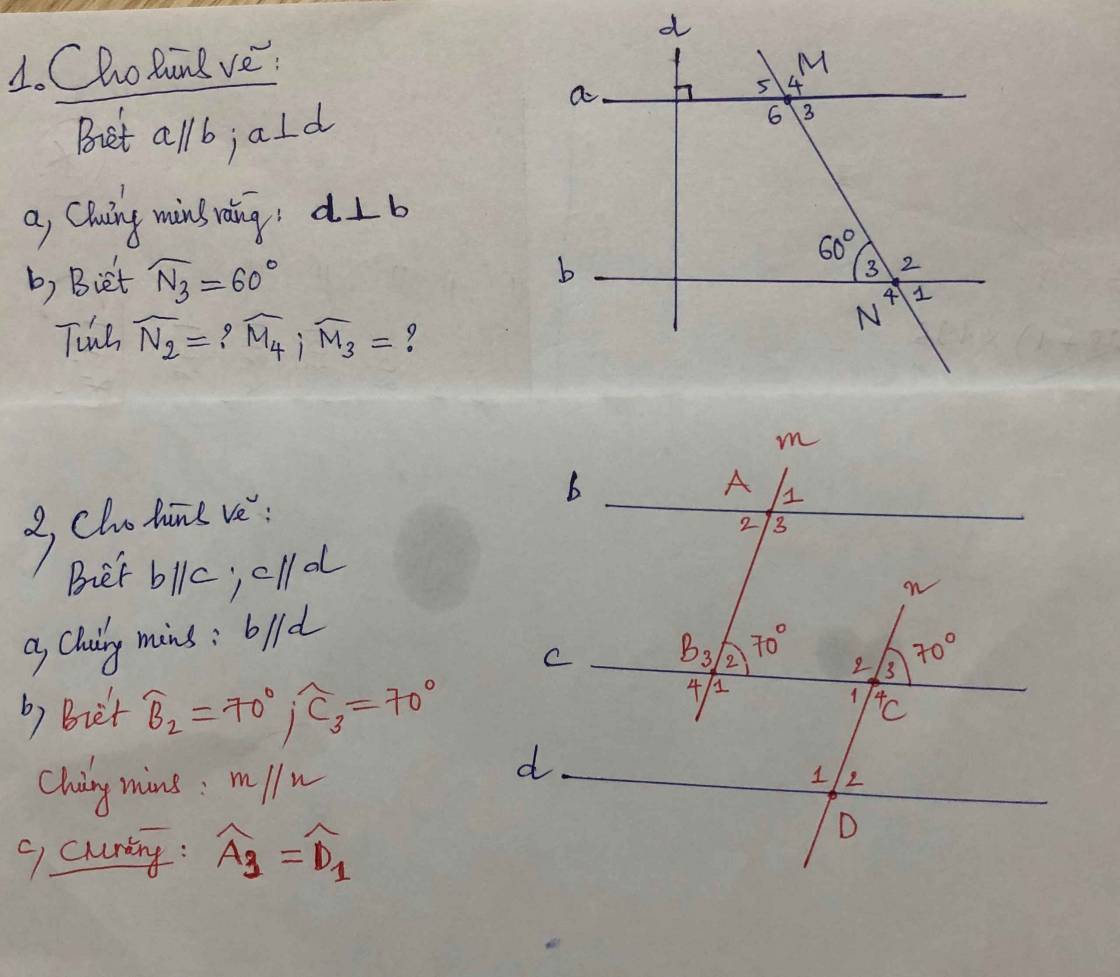 1. Cho hình vẽ:
Biết a//b ; a⊥d
a, Chứng minh rằng: d⊥b
b, Biết N̂₃ = 60°
Tính N̂₂ = ? M̂₄ ; M̂₃ = ?
d
a
5 4 M
6 3
b
60°
3 2
4 1
N
2, Cho hình vẽ:
Biết b//c ; c//d
a, Chứng minh : b//d
b, Biết B̂₂ = 70° ; Ĉ₃ = 70°
Chứng minh : m//n
c, CMrằng : Â₃ = D̂₁
m
b
A 1
2 3
n
c
B 3 2 70°
4 1
2 3 70°
1 4 C
d
1 2
D